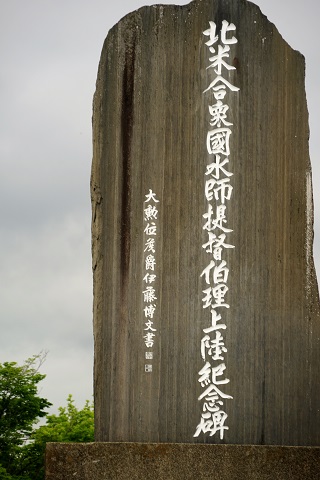 北米合衆國水師提督伯理上陸紀念碑
大勲位侯爵伊藤博文書